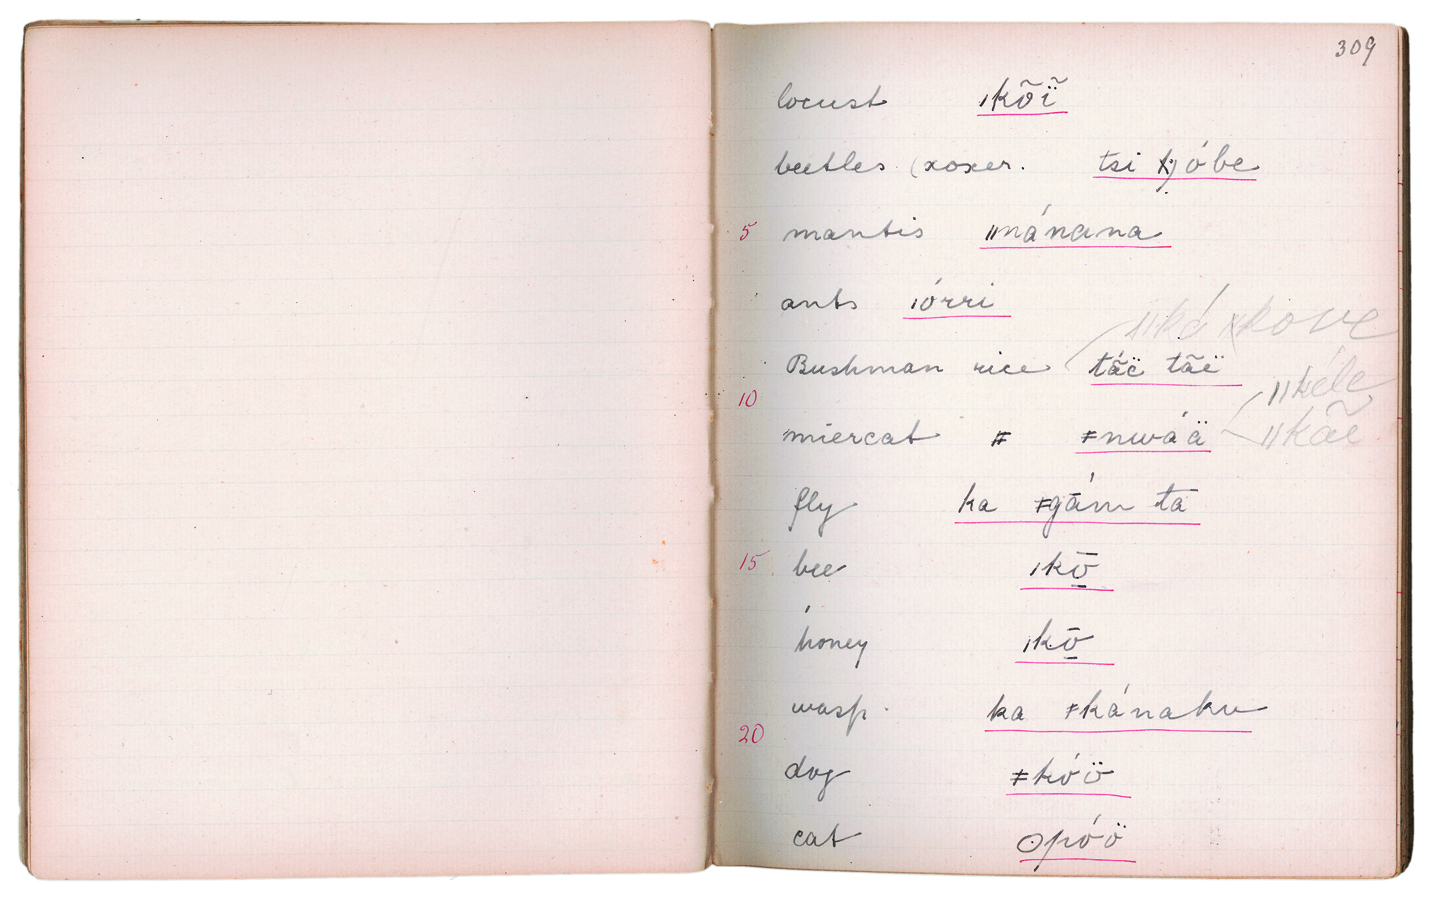 309
locust ǀkõĩ̈
beetles (xoxer. tsi k)óbe
5 mantis ǁnánana
ants ǀórri
Bushman rice tã́ë tãë ǁká kove
10 ǁkéle
miercat ǂ ǂnwáä ǁkãe
fly ka ǂgám ta
15 bee ǀkō̠
honey ǀkō̠
wasp. ka ǂkánaku
20
dog ǂkóö
cat ʘpóö